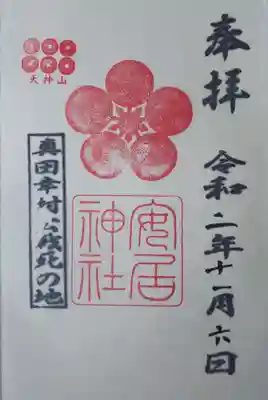 奉拝
令和二年十一月六日
安居神社
天神山
真田幸村公戦死の地